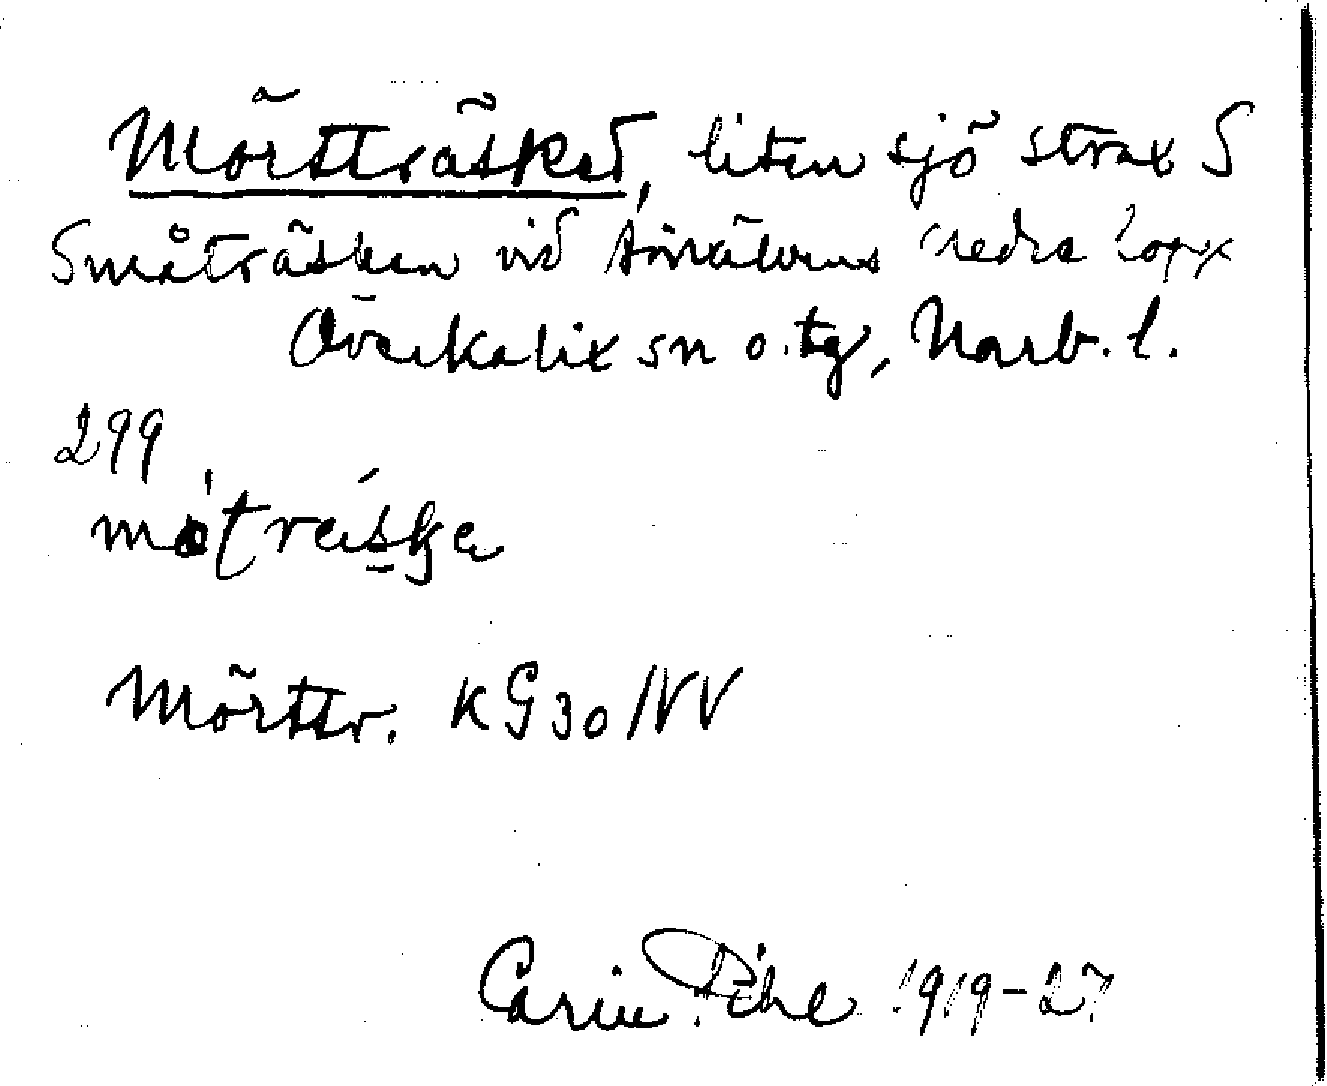 Mörtträsket, liten sjö strax S
Småträsken vid Törrälvens nedre lopp
Överkalix sn o. tg, Norb. l.
299
Mörttr. KG30/NV
Carin Pihl 1919-27